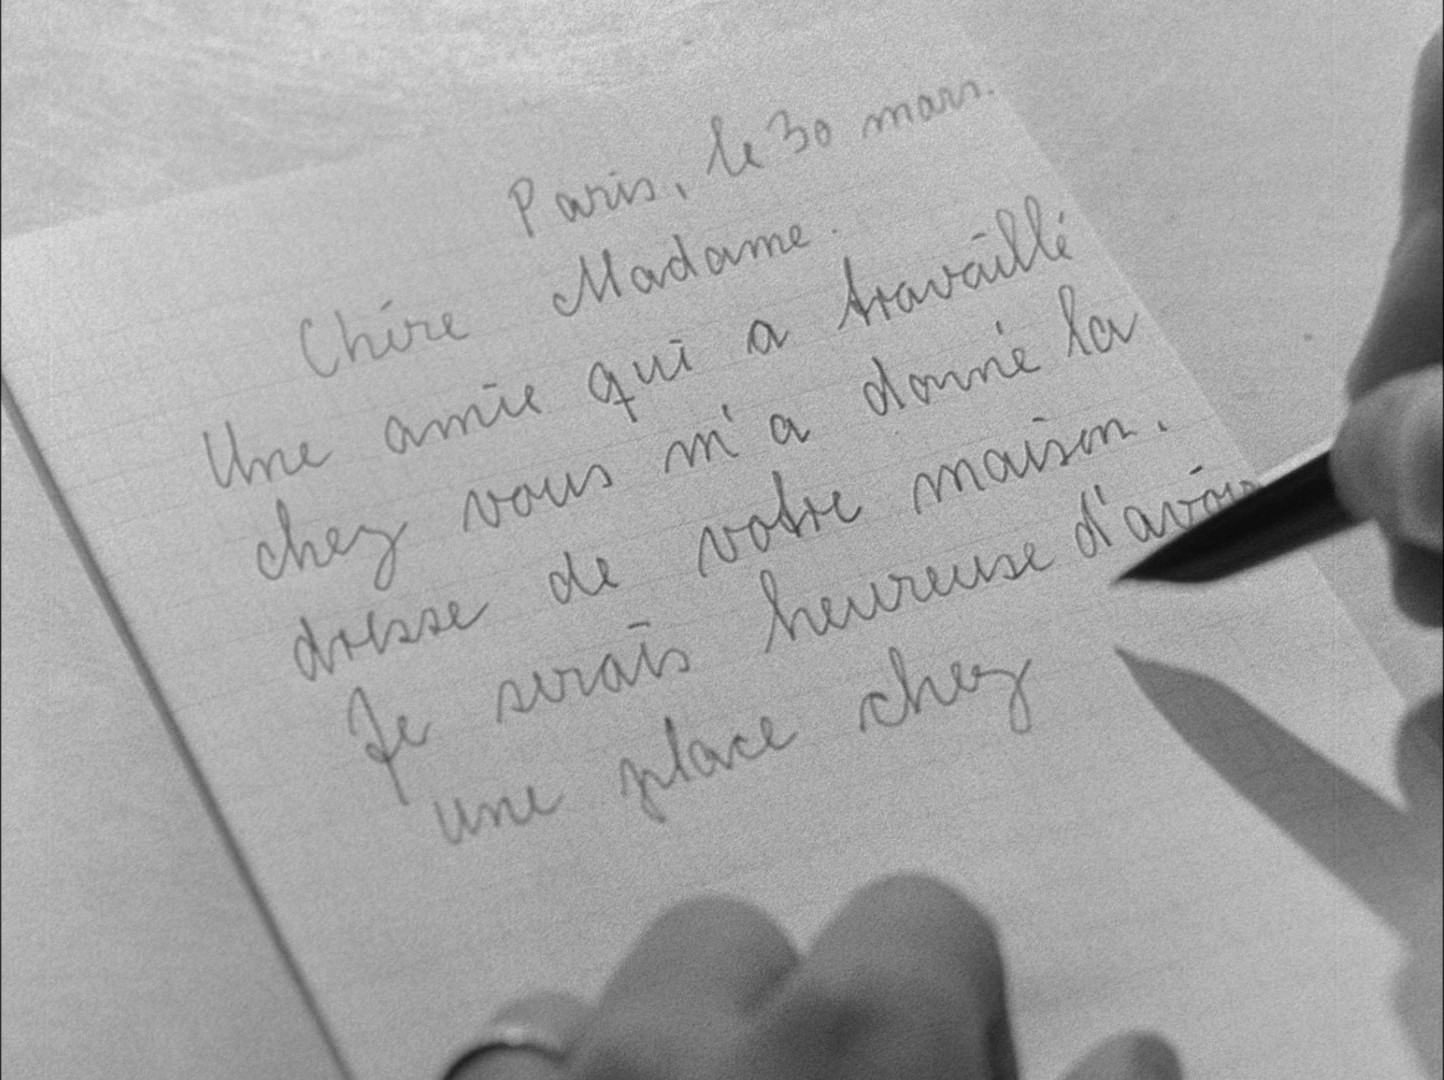 Paris, le 30 mars.
Chère Madame.
Une amie qui a travaillé
chez vous m'a donné la
dresse de votre maison.
Je serais heureuse d'avoir
une place chez